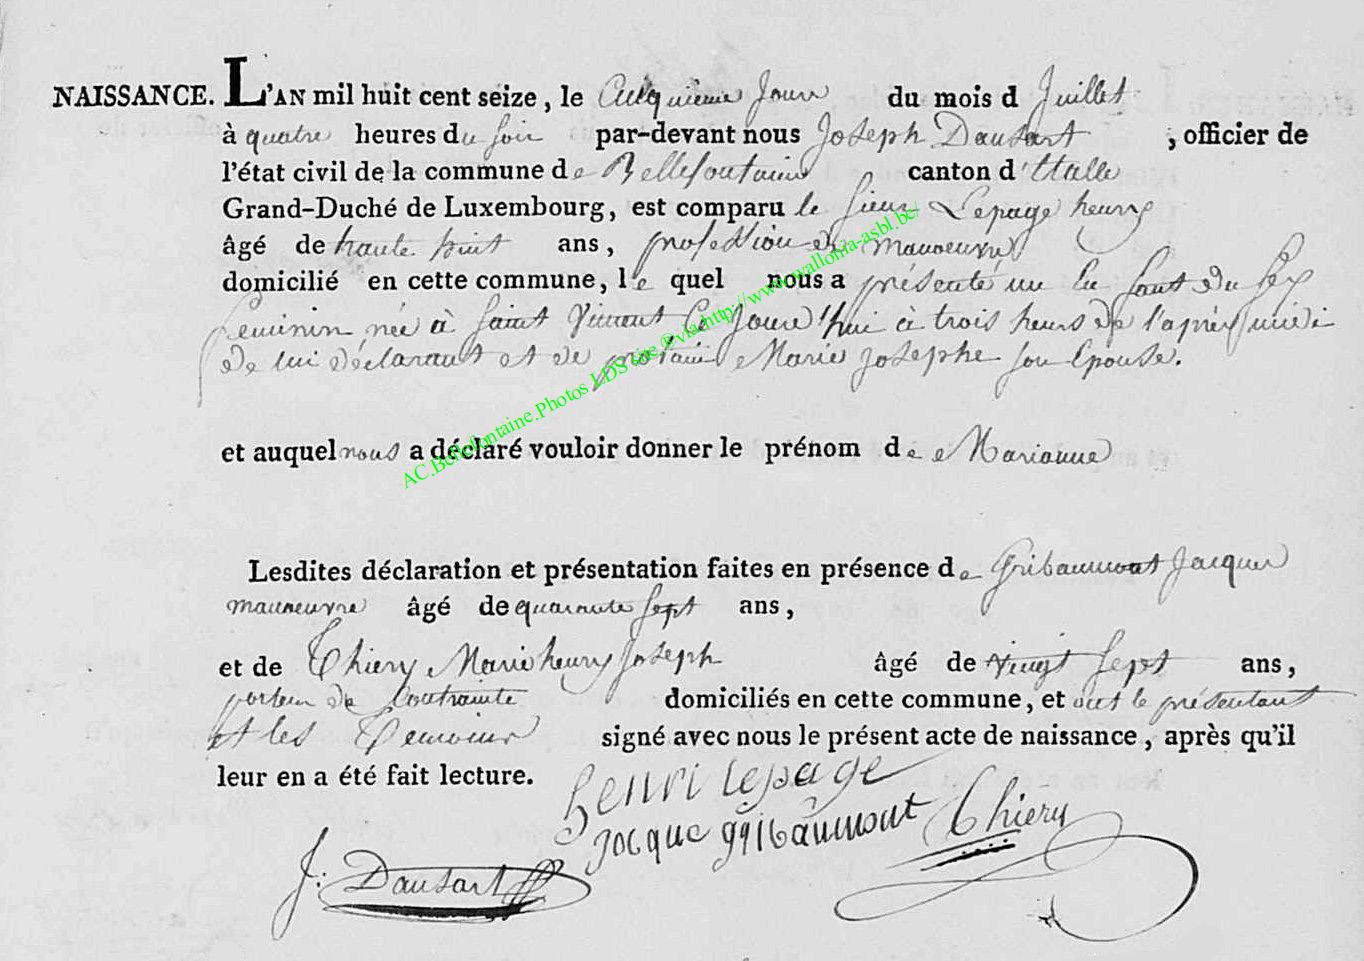 NAISSANCE. L'AN mil huit cent seize, le Cinquième Jour du mois d Juillet
à quatre heures du soir par-devant nous Joseph Dausart, officier de
l'état civil de la commune de Bellefontaine canton d'Etalle
Grand-Duché de Luxembourg, est comparu le sieur Lepage henry
âgé de trente huit ans, profession de manoeuvre
domicilié en cette commune, le quel nous a présenté un En fant du sex
feminin née à Saint Vincent Ce Jourd'hui à trois heurs de l'après midi
de lui déclarant et de Marie Josephe son Epouse.
et auquel nous a déclaré vouloir donner le prénom de Marianne
Lesdites déclaration et présentation faites en présence de Gribaumont Jacques
manoeuvre âgé de quarante sept ans,
et de Thiery Marie henry Joseph âgé de vingt sept ans,
porteur de Contrainte domiciliés en cette commune, et ont le présentant
et les Temoins signé avec nous le présent acte de naissance, après qu'il
leur en a été fait lecture.
henri lepage
Jacque gribaumont Thiéry
J: Dausart
AC.Bellefontaine.Photos LDS site @via http://www.wallonia-asbl.be/